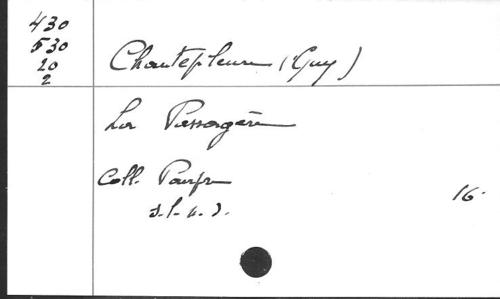 430
530
20
2
Chantepleure (Guy)
La Passagère
Coll.
s.l.n.d.
16